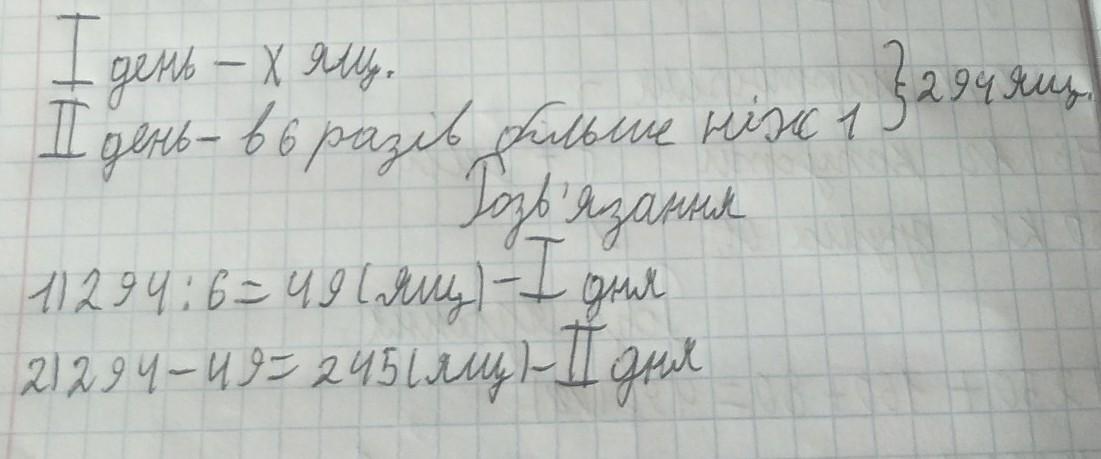 I день – х ящ.
II день – в 6 разів більше ніж 1 } 294 ящ.
Розв'язання
1) 294 : 6 = 49 (ящ) – I дня
2) 294 – 49 = 245 (ящ) – II дня